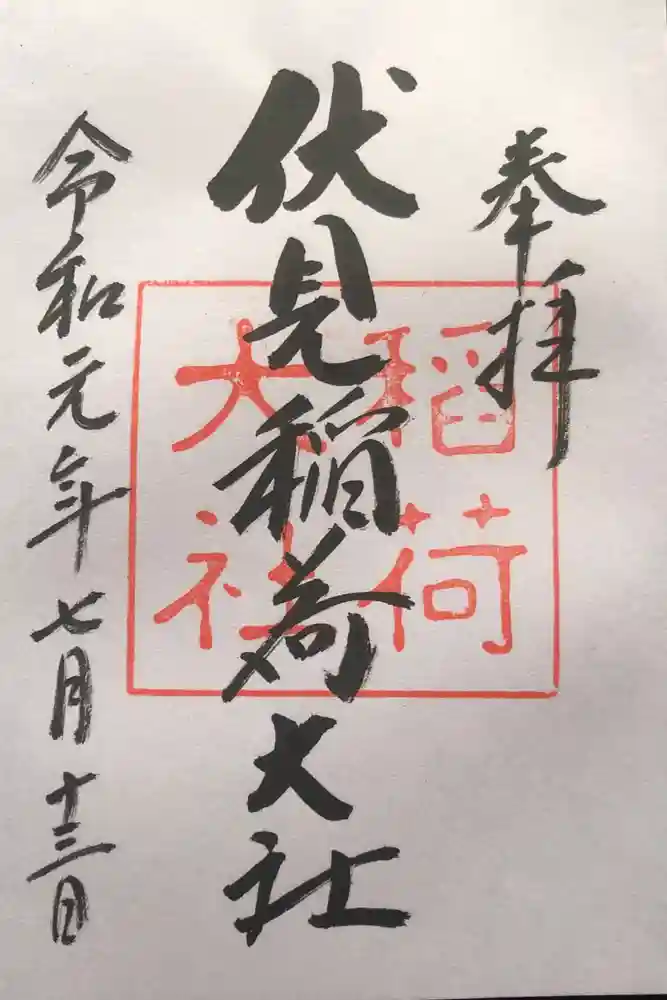 奉拝
伏見稲荷大社
稲荷
大社
令和元年七月十三日